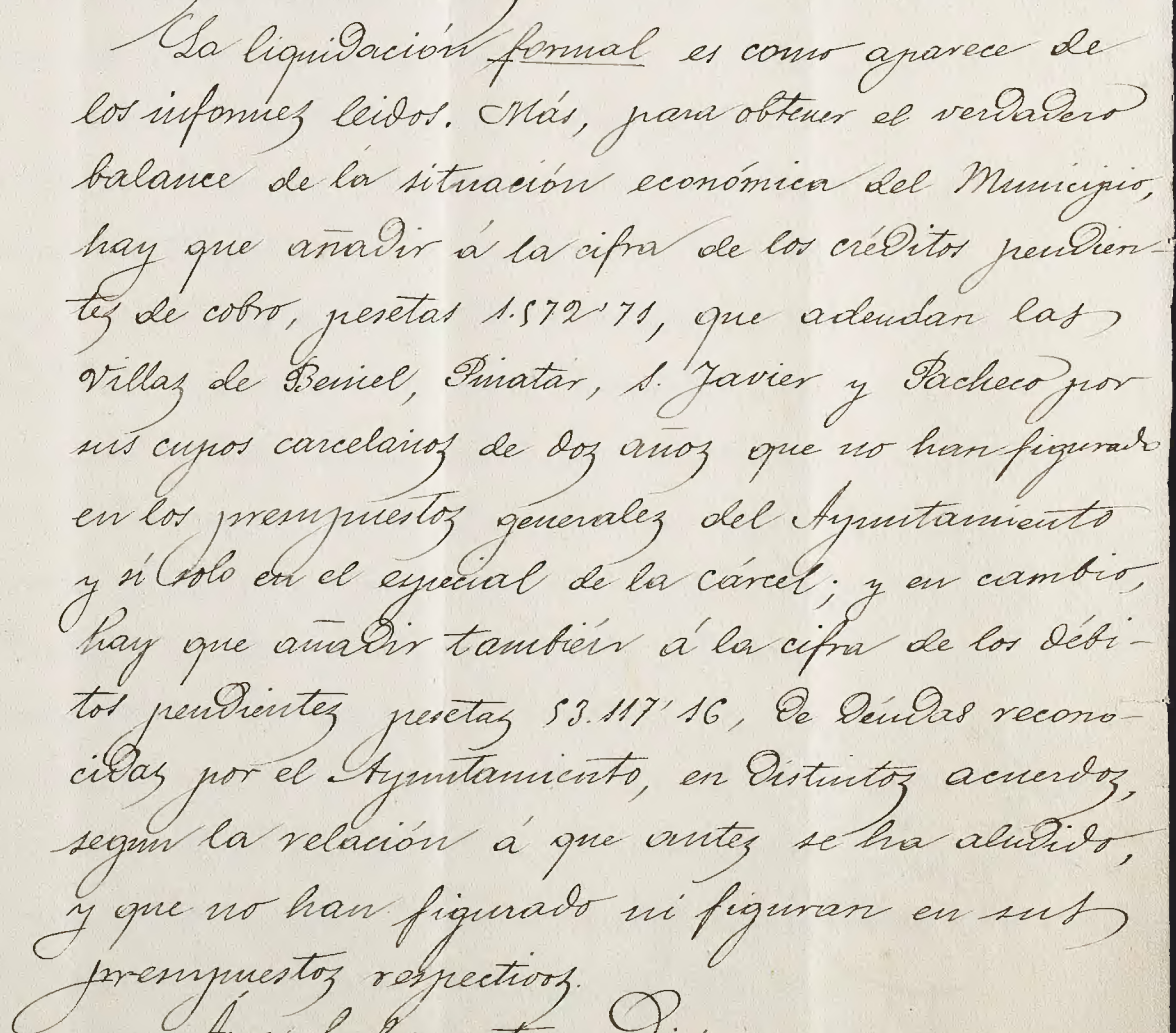 La liquidación formal es como aparece de
los informes leidos. Más, para obtener el verdadero
balance de la situación económica del Municipio,
hay que añadir á la cifra de los créditos pendien-
tes de cobro, pesetas 1.572'71, que adeudan las
Villas de Beniel, Pinatar, S. Javier y Pacheco por
sus cupos carcelarios de dos años que no han figurado
en los presupuestos generales del Ayuntamiento
y sí solo en el especial de la cárcel; y en cambio,
hay que añadir también á la cifra de los débi-
tos pendientes pesetas 53.117'16, de deudas recono-
cidas por el Ayuntamiento, en distintos acuerdos,
segun la relación á que antes se ha aludido,
y que no han figurado ni figuran en sus
presupuestos respectivos.